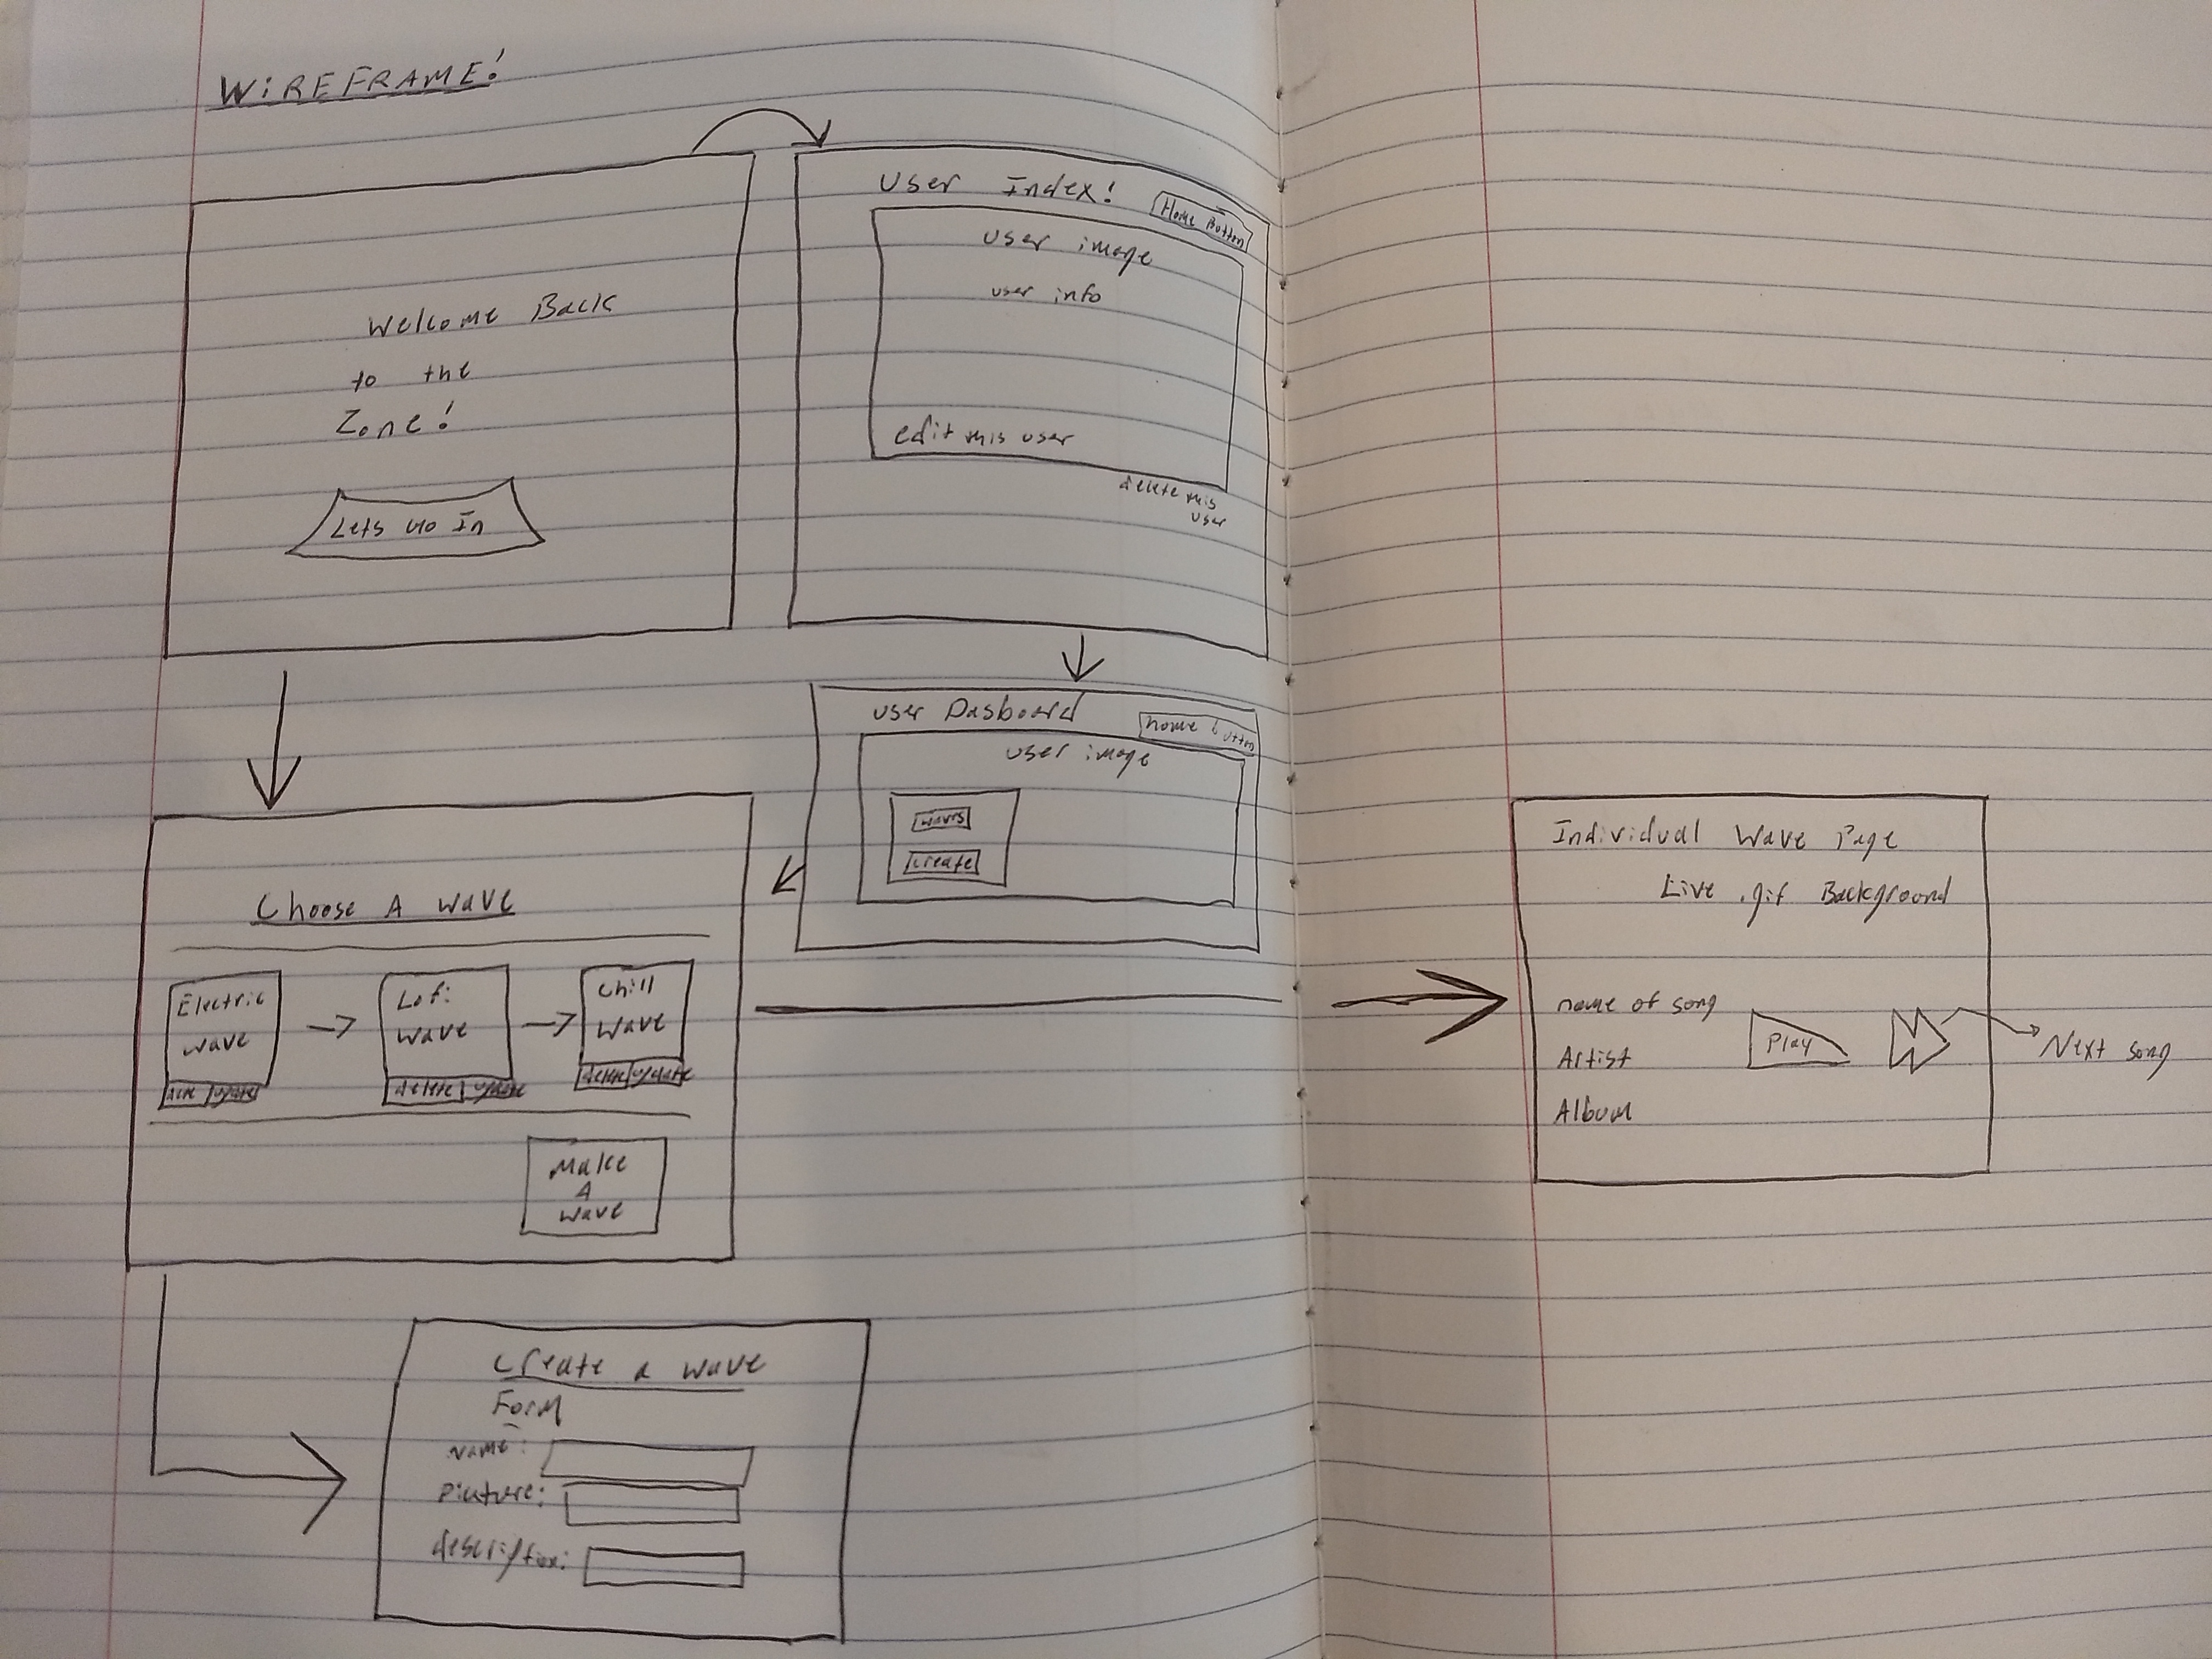 WIREFRAME!
Welcome Back
to the
Zone!
Lets Go In
User Index!
Home Button
User image
user info
edit this user
delete this
user
User Dasboard
home button
User image
waves
create
Choose A wave
Electric
wave
update
Lofi
wave
delete update
Chill
wave
delete update
Make
A
wave
Create a wave
Form
Name:
Picture:
description:
Individual Wave Page
Live .gif Background
name of song
Artist
Album
Play
Next song